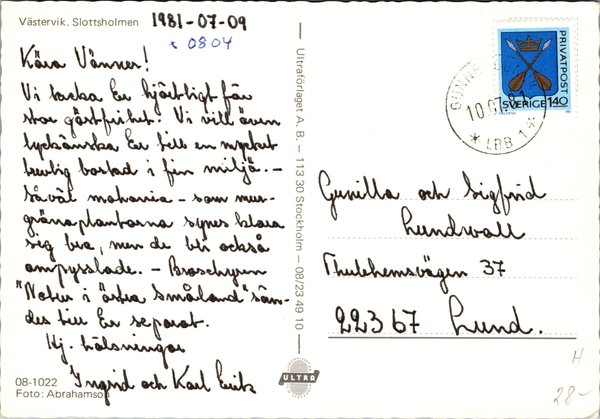 Västervik. Slottsholmen
1981-07-09
x 0804
Kära Vänner!
Vi tacka Er hjärtligt för
stor gästfrihet! Vi vill även
lyckönska Er till en mycket
trevlig bostad i fin miljö. –
Såväl mahonia – som mur-
grönaplantorna synes klara
sig bra, men de blir också
ompysslade. – Broschyren
"Notes i östra Småland" sän-
des till Er separat.
Hj. hälsningar
Ingrid och Karl Erik
08-1022
Foto: Abrahamson
Ultraförlaget A.B. – 113 30 Stockholm – 08/23 49 10
ULTRA
10.07.81
LBB 1
PRIVATPOST
SVERIGE 140
Gunilla och Sigfrid
Lundwall
Thulehemsvägen 37
223 67 Lund.
H
28-